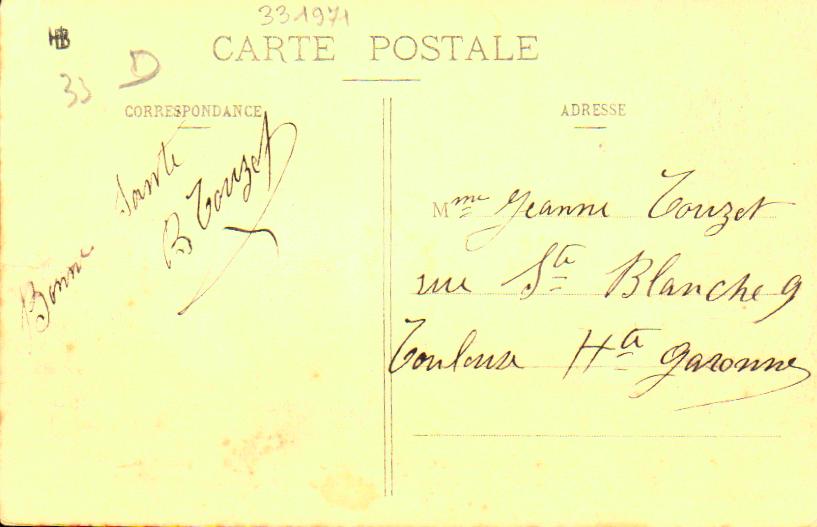 331971
HB
CARTE POSTALE
33 D
CORRESPONDANCE
Bonne Santé
B Touzet
ADRESSE
Mme Jeanne Touzet
rue Ste Blanche 9
Toulouse Hte Garonne